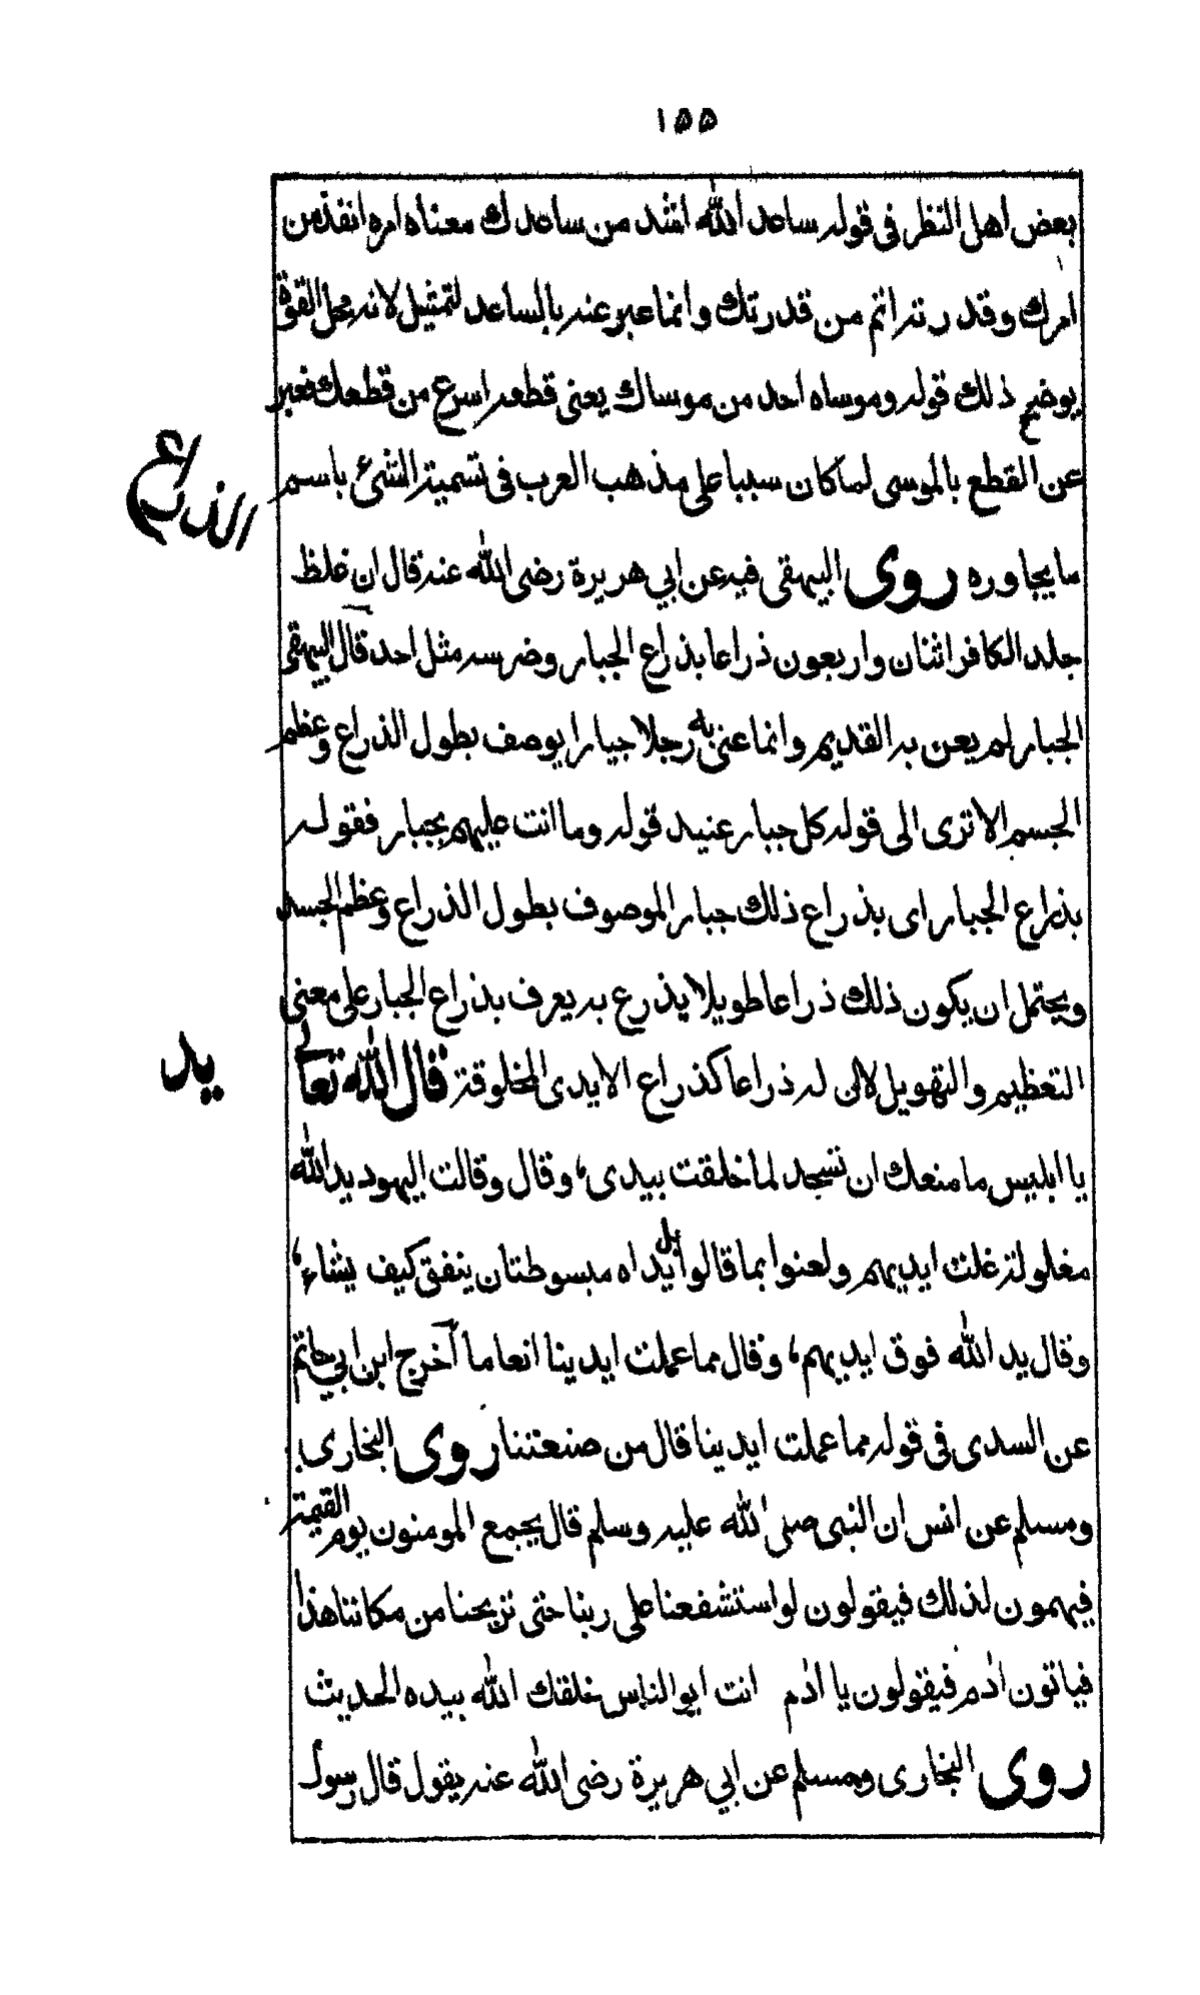 ١٥٥
بعض اهل النظر فى قوله ساعد الله اشد من ساعدك معناه امره انفذ من
امرك وقدرته اتم من قدرتك وانما عبر عنه بالساعد لتمثيل لانه محل القوة
يوضح ذلك قوله وموساه احد من موساك يعنى قطعه اسرع من قطعك فعبر
عن القطع بالموسى لما كان سببا على مذهب العرب فى تسمية الشئ باسم
الذراع
ما يجاوره روى البيهقى فيه عن ابي هريرة رضى الله عنه قال ان غلظ
جلد الكافر اثنان واربعون ذراعا بذراع الجبار وضرسه مثل احد قال البيهقى
الجبار لم يعن به القديم وانما عنى به رجلا جبارا يوصف بطول الذراع وعظم
الجسم الا ترى الى قوله كل جبار عنيد قوله وما انت عليهم بجبار فقوله
بذراع الجبار اى بذراع ذلك جبار الموصوف بطول الذراع وعظم الجسد
ويحتمل ان يكون ذلك ذراعا طويلا يذرع به يعرف بذراع الجبار على معنى
التعظيم والتهويل لا ان له ذراعا كذراع الايدى المخلوقة قال الله تعالى
يد
يا ابليس ما منعك ان تسجد لما خلقت بيدى، وقال وقالت اليهود يد الله
مغلولة غلت ايديهم ولعنوا بما قالوا بل يداه مبسوطتان ينفق كيف يشاء،
وقال يد الله فوق ايديهم، وقال مما عملت ايدينا انعاما اخرج ابن ابي حاتم
عن السدى فى قوله مما عملت ايدينا قال من صنعتنا روى البخارى
ومسلم عن انس ان النبى صلى الله عليه وسلم قال يجمع المومنون يوم القيمة
فيهمون لذلك فيقولون لو استشفعنا على ربنا حتى تزيحنا من مكاننا هذا
فياتون ادم فيقولون يا ادم انت ابو الناس خلقك الله بيده الحديث
روى البخارى ومسلم عن ابي هريرة رضى الله عنه يقول قال رسول